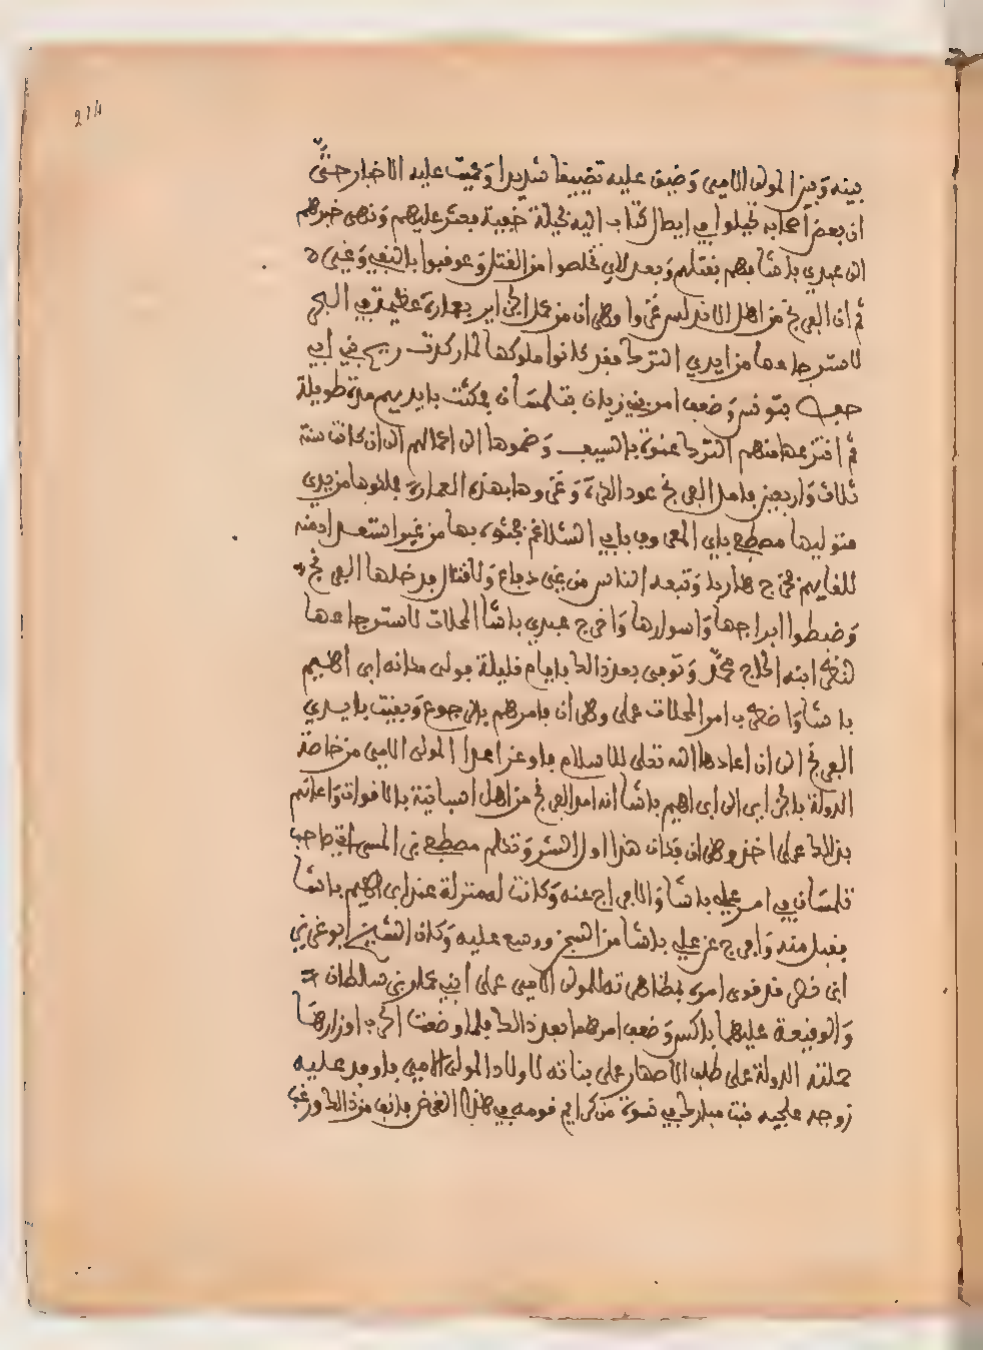 274
بينه وبين المولى الامير وضيق عليه تضييقا شديدا وعميت عليه الاخبار حتى
ان بعض اصحابه تحيلوا في ايصال كتاب اليه بحيلة خفية فعثر عليهم ونهى خبرهم
الى عبدي باشا فهم بقتلهم وبعد لاي تخلصوا من القتل وعوقبوا بالنفي وغيره
ثم ان الفرنج من اهل الاندلس غزوا وهران من عمل الجزاير بعمارة عظيمة في البحر
لاسترجاعها من ايدي الترك فقد كانوا ملوكها لما ركدت ريح بني ابي
حفص بتونس وضعف امر بني زيان بتلمسان فمكثت بايديهم مدة طويلة
ثم افتزعها منهم الترك عنوة بالسيف وضموها الى اعمالهم الى ان كانت سنة
ثلاث واربعين فامل الفرنج عود الكرة وغزوها بهذه العمارة فملكوها من يدي
متوليها مصطفى باي المعروف بابي الشلاغم فجئوه بها من غير استعداد منه
للقايهم فخرج هاربا وتبعه الناس من غير دفاع ولا قتال فدخلها الفرنج
وضبطوا ابراجها واسوارها واخرج عبدي باشا المحلات لاسترجاعها
لنظر ابنه الحاج محمد وتوفي بعد ذالك بايام قليلة فولى مكانه ابراهيم
باشا واضطرب امر المحلات على وهران فامرهم بالرجوع وبقيت بايدي
الفرنج الى ان اعادها الله تعلى للاسلام فاوعز اعداء المولى الامير من خاصة
الدولة بالجزاير الى ابراهيم باشا انه امر الفرنج من اهل اسبانية بالاقوات واعانهم
بذالك على اخذ وهران فكان هذا اول الشر وتكلم مصطفى بن المسراتي صاحب
تلمسان في امر علي باشا والافراج عنه وكانت له منزلة عند ابراهيم باشا
فقبل منه وافرج عن علي باشا من السجن ورفع عليه وكان الشيخ ابو عزيز
ابن نصر قد قوى امره بمظاهرته للمولى الامير على ابن عمار بني سلطان
والوقيعة عليهما بالكسر وضعف امرهما بعد ذالك فلما وضعت الحرب اوزارها
حملته الدولة على طلب الاصهار على بناته لاولاد المولى الامير فاوفد عليه
زوجه علجيه بنت مبارك في نسوة من كرايم قومه في هذا الغرض فانف من ذالك ورغب